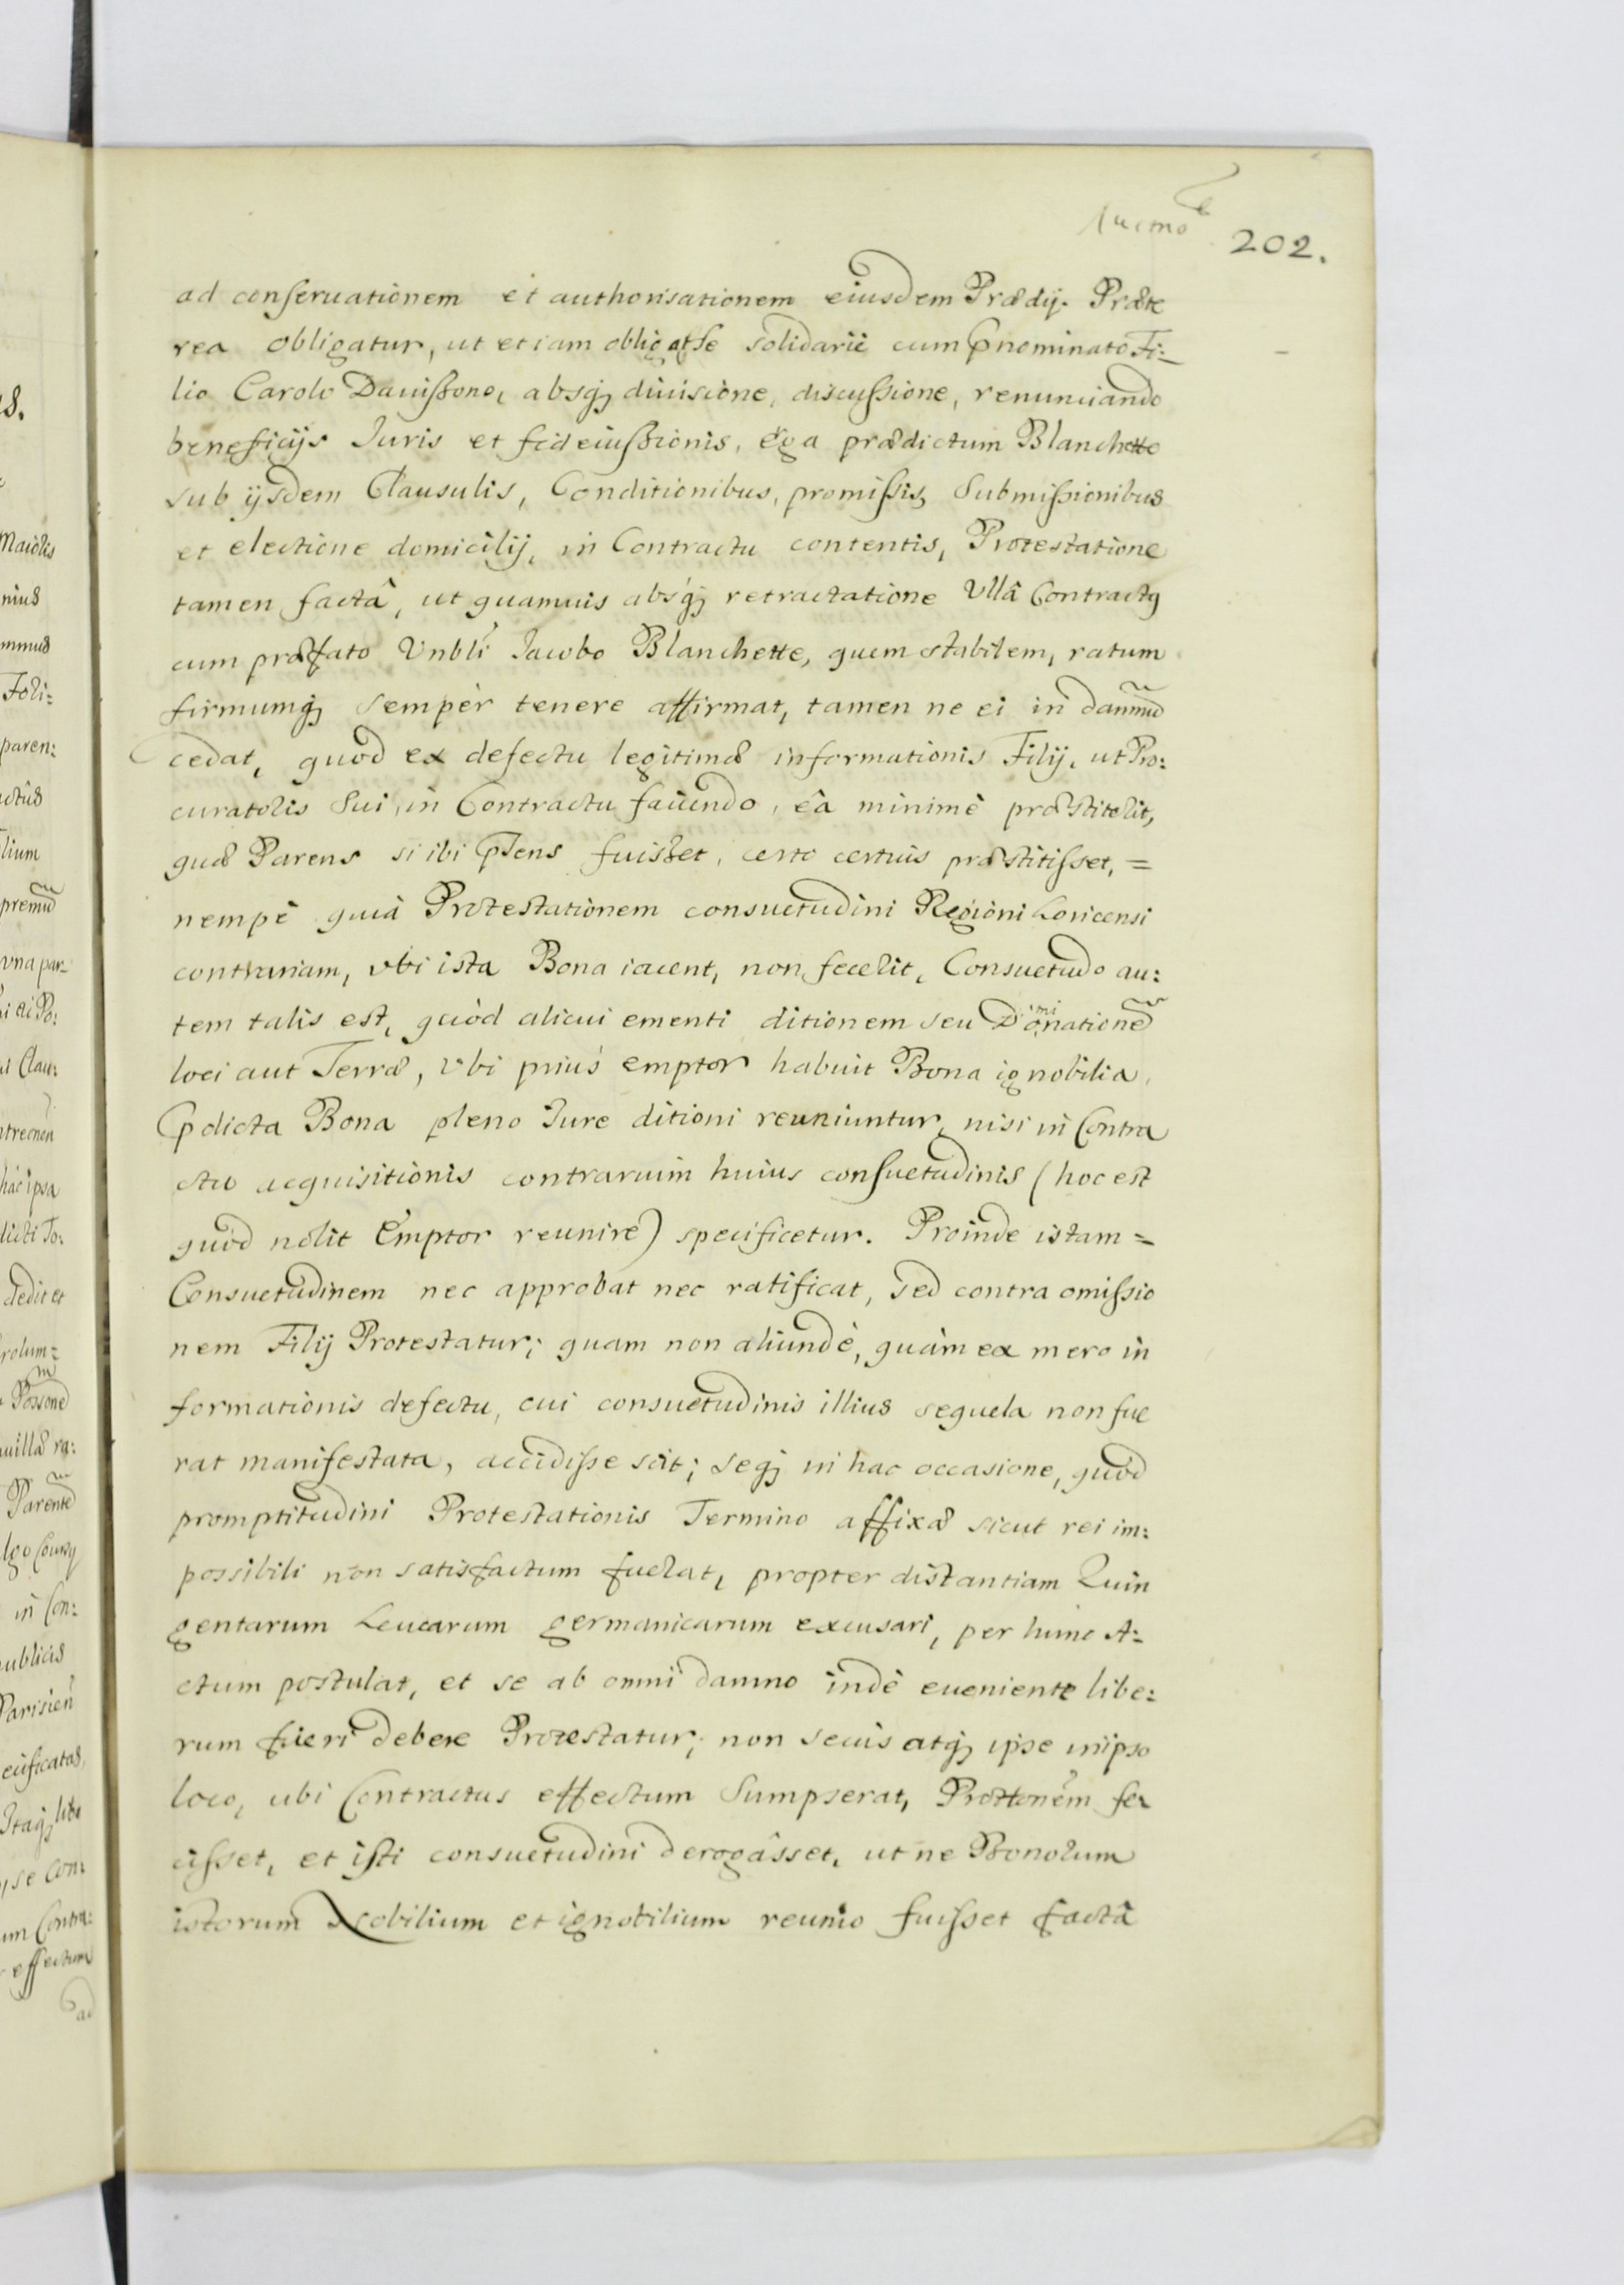 202.
ad conseruationem et authorisationem eiusdem Prædij. Præte
rea obligatur, ut etiam obligat se solidariè cum pnominato Fi:
lio Carolo Dauissono, absq; diuisione, discussione, renunciando
beneficijs Iuris et fideiussionis, ega prædictum Blanchette
sub ijsdem Clausulis, Conditionibus, promissis, Submissionibus
et electione domicilij, in Contractu contentis, Protestatione
tamen factâ, ut quamuis absq; retractatione Vllâ Contractq
cum præfato Vnbli Iacobo Blanchette, quem stabilem, ratum
firmumq; sempèr tenere affirmat, tamen ne ei in damnũ
cedat, quod ex defectu legitimæ informationis Filij, ut Pro:
curatoris Sui, in Contractu faciendo, ea minimè præstiterit,
quæ Parens si ibi pñens fuisset, certo certius præstitisset, =
nempè quià Protestationem consuetudini Regioni Loricensi
contrariam, vbi ista Bona iacent, non fecerit, Consuetudo au:
tem talis est, quòd alicui ementi ditionem seu Dominationẽ
loci aut Terræ, vbi priùs emptor habuit Bona ignobilia,
pdicta Bona pleno Iure ditioni reuniuntur, nisi in Contra
ctu acquisitionis contrarium huius consuetudinis (hoc est
quòd nolit Emptor reunire) specificetur. Proinde istam =
Consuetudinem nec approbat nec ratificat, sed contra omissio
nem Filij Protestatur; quam non aliundè, quàm ex mero in
formationis defectu, cui consuetudinis illius sequela non fue
rat manifestata, accidisse scit; seq; in hac occasione, quòd
promptitudini Protestationis Termino affixæ sicut rei im:
possibili non satisfactum fuerat, propter distantiam Quin
gentarum Leucarum germanicarum excusari, per hunc A:
ctum postulat, et se ab omni damno indè eueniente libe:
rum fieri debere Protestatur; non secùs atq; ipse in ipso
loco, ubi Contractus effectum Sumpserat, Prottonem fe
cisset, et isti consuetudini derogâsset, ut ne Bonorum
istorum Nobilium et ignobilium reunio fuisset facta